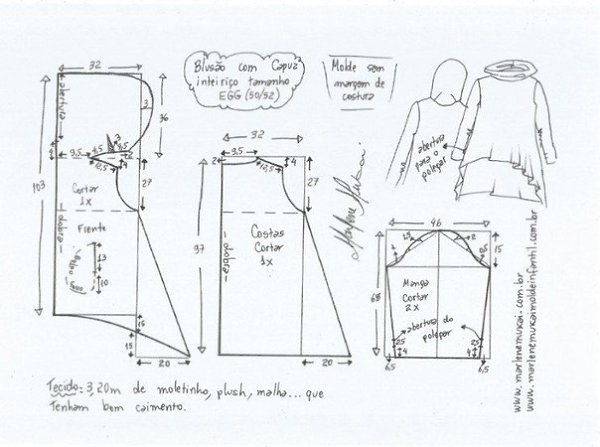 Blusão com Capuz
inteiriço tamanho
EGG (50/52)
Molde sem
margem de
costura
32
abertura
3
36
103
9,5
4,5
3
3,5
2
4
12,5
27
Cortar
1x
dobra
Frente
Bolso
13
10
15
15
20
32
2
9,5
4
12,5
27
97
Costas
Cortar
1x
dobra
20
Marlene Mukai
abertura
para o
polegar
46
1,5
2
0,5
15
68
Manga
Cortar
2x
abertura do
polegar
25
4
25
4
6,5
6,5
www.marlenemukai.com.br
www.marlenemukaimoldeinfantil.com.br
Tecido: 3,20m de moletinho, plush, malha... que
Tenham bom caimento.